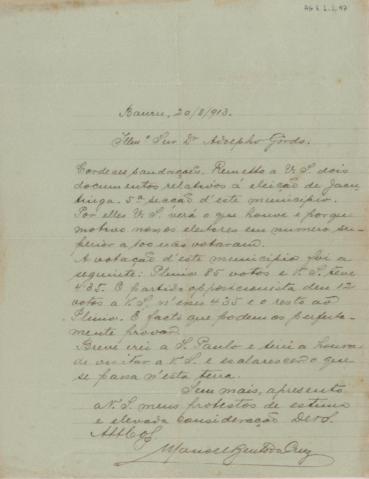 Bauru, 20/8/913.
Illmº Snr. Dr Adolpho Gordo.
Cordeaes saudações. Remetto a V. S. dois
documentos relativos á eleição de Jacu
tinga. 5ª secção d'este municipio.
Por elles V. S. verá o que houve e porque
motivo nossos eleitores em numero su-
perior a 100 não votaram.
A votação d'este municipio foi a
seguinte: Plinio 85 votos e V. S. teve
435. O partido opposicionista deu 12
votos a V. S. n'esses 435 e o resto ao
Plinio. É facto que podemos perfeita-
mente provar.
Breve irei a S. Paulo e terei a honra
de visitar a V. S. e esclarescer o que
se passa n'esta terra.
Sem mais, apresento
a V. S. meus protestos de estima
e elevada consideração De V. S.
Manoel Bento da Cruz